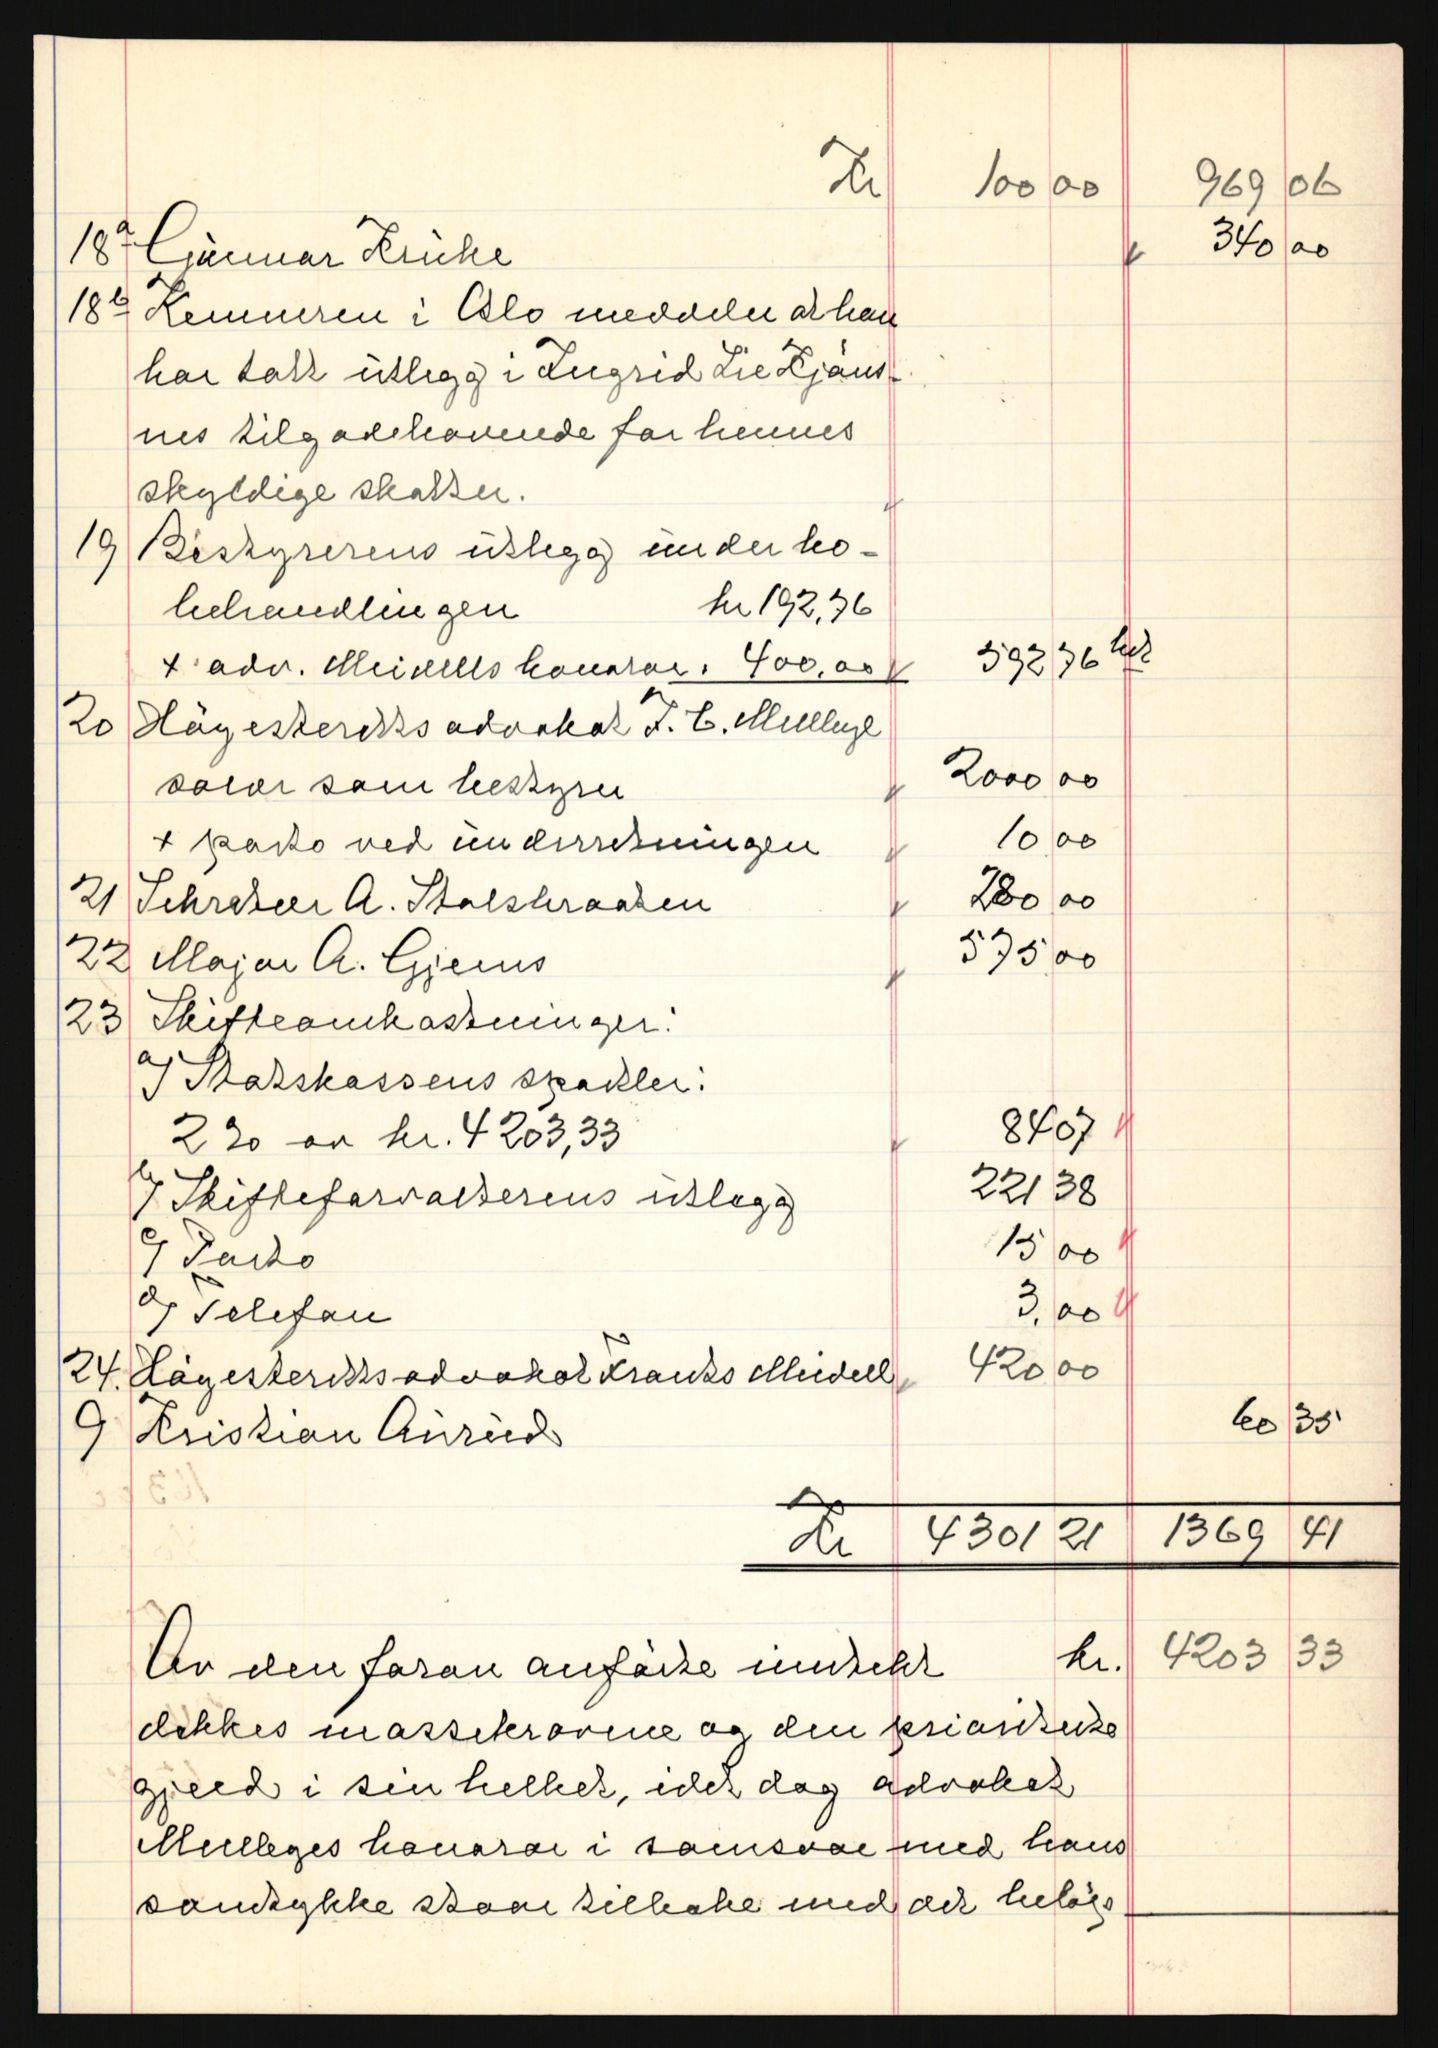 Kr 100 00 969 06
18a Gunnar Krüke 340 00
18b Kemneren i Oslo meddeler at han
har tatt utlegg i Ingrid Lie Kjøns-
nes tilgodehavende for hennes
skyldige skatter.
19 Bestyrerens utlegg under bo-
behandlingen kr 192,76
+ adv. Meidells honorar " 400,00 592 76
20 Høyesterettsadvokat J. C. Mellbye
salær som bestyrer 2000 00
+ porto ved underretningen 10 00
21 Sekretær A. Stalsbraaten 280 00
22 Major A. Gjems 575 00
23 Skifteomkostninger:
a) Statskassens sportler:
2 % av kr. 4203,33 84 07
b) Skifteforvalterens utlegg 221 38
c) Porto 15 00
d) Telefon 3,00
24. Høyesterettsadvokat Frants Meidell 420 00
9 Kristian Aurud 60 35
Kr 4301 21 1369 41
Av den foran anførte inntekt kr. 4203 33
dekkes massekravene og den prioriterte
gjeld i sin helhet, idet dog advokat
Mellbyes honorar i samsvar med hans
samtykke staar tilbake med det beløp